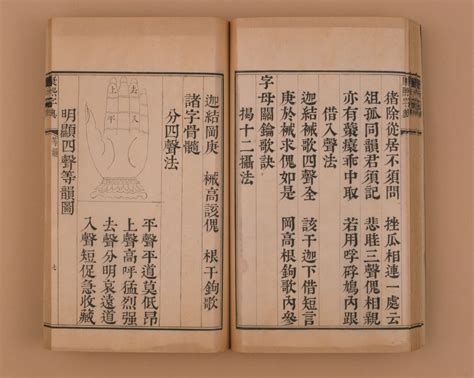 猪除從居不須問 挫瓜相連一處云
徂孤同韻君須記 悲眭三聲傀相親
亦有 乖中取 若用孚 鳩內跟
借入聲法
迦結裓歌四聲全 該干迦下借短言
庚於裓求傀如是 岡高根鉤歌內參
字母關鑰歌訣
揭十二攝法
迦結岡庚 裓高該傀 根干鉤歌
諸字骨髓
分四聲法
平聲平道莫低昂
上聲高呼猛烈強
去聲分明哀遠道
入聲短促急收藏
上 去
平 入
明顯四聲等韻圖
等韻